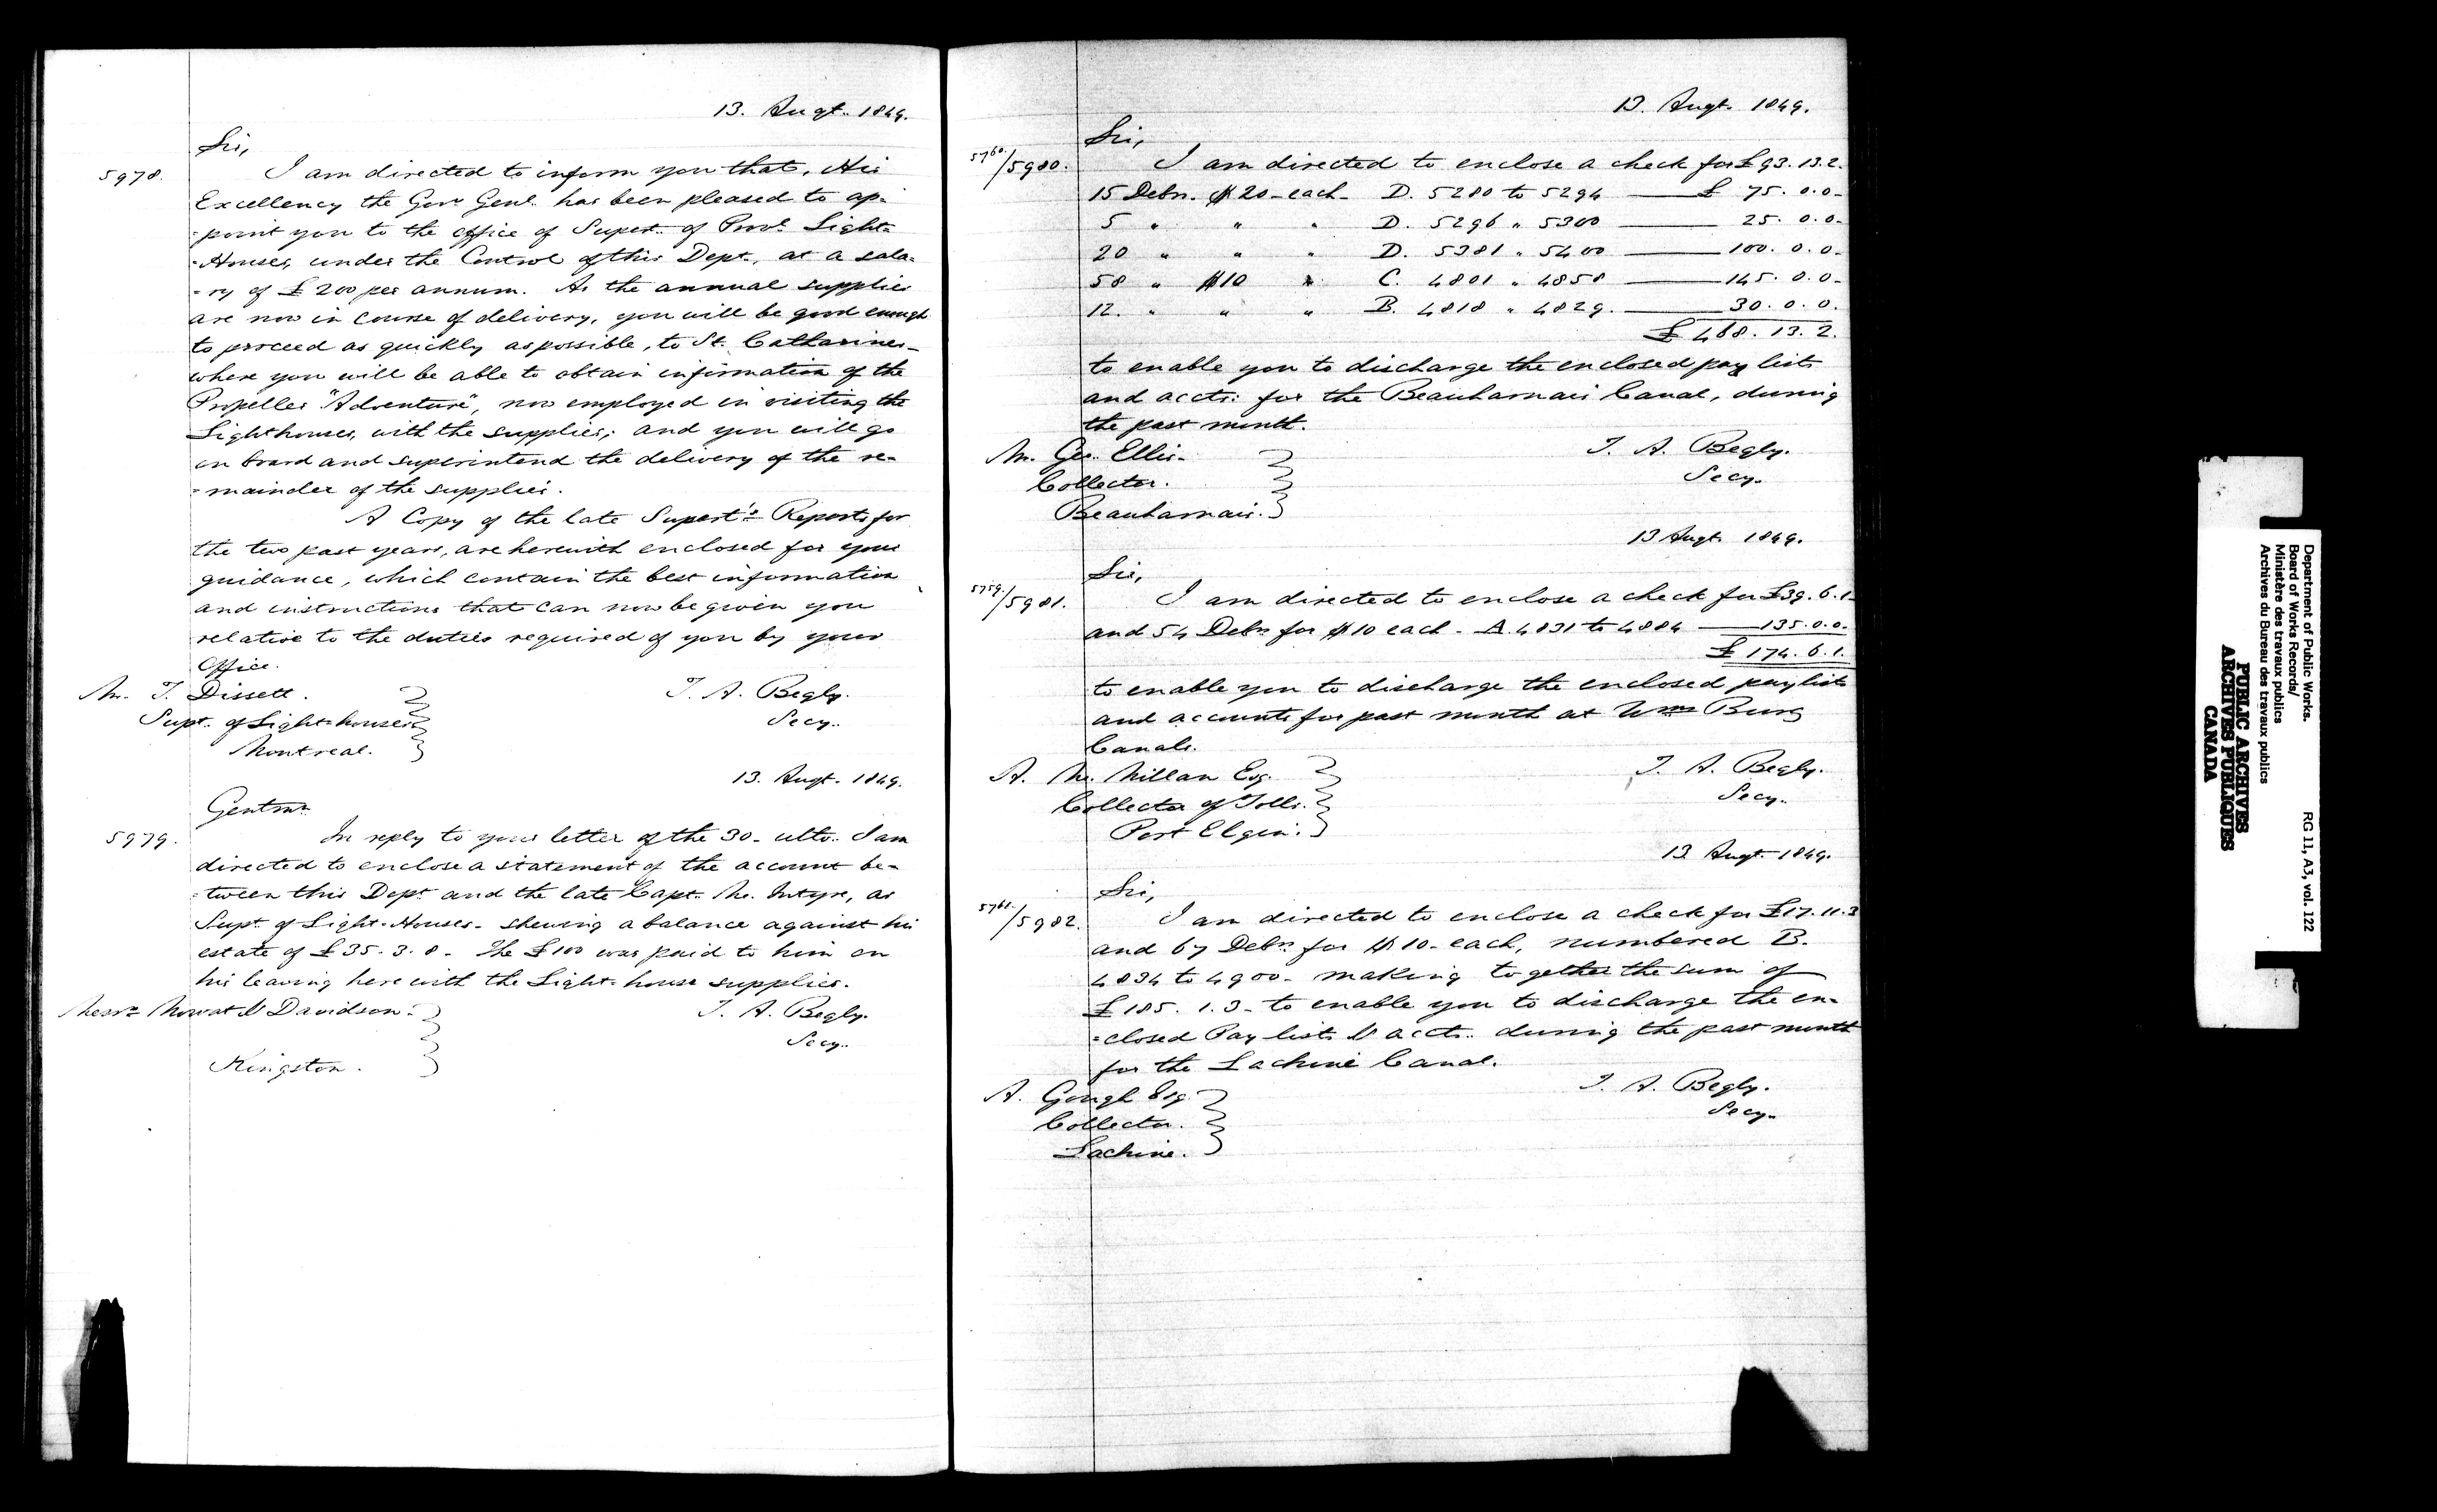 13. Augt. 1849.
Sir,
5978. I am directed to inform you that, His
Excellency the Govr. Genl. has been pleased to ap-
-point you to the office of Supert. of Provl. Light-
-Houses, under the Control of this Dept., at a sala-
-ry of £200 per annum. As the annual supplies
are now in course of delivery, you will be good enough
to proceed as quickly as possible, to St. Catharines-
where you will be able to obtain information of the
Propeller "Adventure", now employed in visiting the
Lighthouses, with the supplies; and you will go
on board and superintend the delivery of the re-
-mainder of the supplies.
A Copy of the late Supert's Reports for
the two past years, are herewith enclosed for your
guidance, which contain the best information
and instructions that can now be given you
relative to the duties required of you by your
Office.
Mr. T. Dissett. T. A. Begly.
Supt. of Light-houses Secy.
Montreal.
13. Augt. 1849.
Gentmn.
5979. In reply to your letter of the 30- ulto. I am
directed to enclose a statement of the account be-
-tween this Dept. and the late Capt. Mc.Intyre, as
Supt. of Light-Houses- shewing a balance against his
estate of £35.3.8- The £100 was paid to him on
his leaving here with the Light-house supplies.
Messrs. Mowat & Davidson. T. A. Begly.
Secy.
Kingston.
13. Augt. 1849.
Sir,
5760./5980. I am directed to enclose a check for £93.13.2.
15 Debrs. $20-each- D. 5280 to 5294 — £ 75.0.0-
5 " " " D. 5296 " 5300 — 25.0.0-
20 " " " D. 5381 " 5400 — 100.0.0-
58 " $10 " C. 4801 " 4858 — 145.0.0-
12. " " " B. 4818 " 4829. — 30.0.0.
£468.13.2.
to enable you to discharge the enclosed pay lists
and accts. for the Beauharnais Canal, during
the past month.
Mr. Geo. Ellis- T. A. Begly.
Collector. Secy.
Beauharnais.
13 Augt. 1849.
Sir,
5759./5981. I am directed to enclose a check for £39.6.1-
and 54 Debrs for $10 each- A. 4831 to 4884 — 135.0.0.
£174.6.1.
to enable you to discharge the enclosed paylists
and accounts for past month at Wms Burg
Canals.
A. Mc.Millan Esq. T. A. Begly.
Collector of Tolls. Secy.
Port Elgin.
13 Augt. 1849.
Sir,
5761./5982. I am directed to enclose a check for £17.11.3
and 67 Debrs. for $10- each, numbered B.
4834 to 4900- making together the sum of
£185.1.3- to enable you to discharge the en-
-closed Pay lists & accts. during the past month
for the Lachine Canal.
A. Gough Esq T. A. Begly.
Collector. Secy.
Lachine.
Department of Public Works.
Board of Works Records/
Ministère des travaux publics
Archives du Bureau des travaux publics
RG 11, A3, vol. 122
PUBLIC ARCHIVES
ARCHIVES PUBLIQUES
CANADA